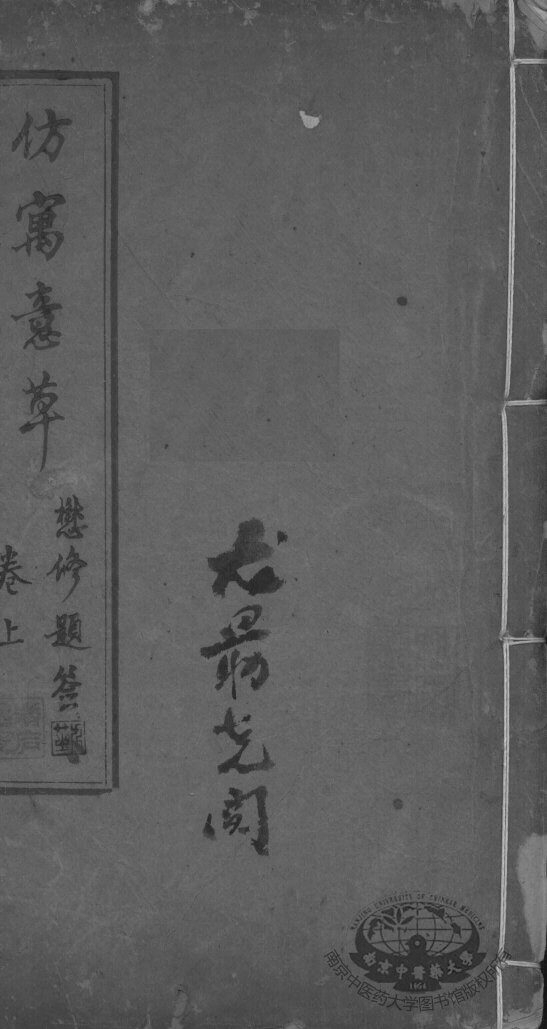 仿寓意草
懋修題簽
卷上
尤最老閱
NANJING UNIVERSITY OF CHINESE MEDICINE
南京中醫藥大學
1954
南京中医药大学图书馆版权所有